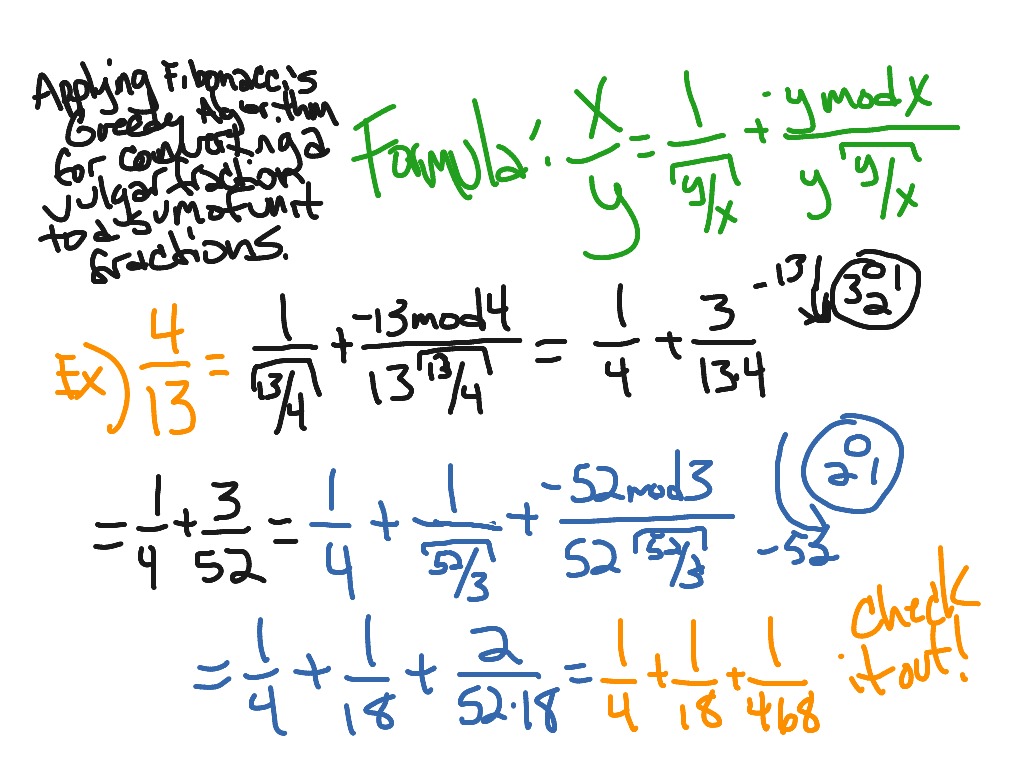 Applying Fibonacci's
Greedy Algorithm
for converting a
vulgar fraction
to a sum of unit
fractions.
Formula: x/y = 1/⌈y/x⌉ + -y mod x / y⌈y/x⌉
Ex) 4/13 = 1/⌈13/4⌉ + -13 mod 4 / 13⌈13/4⌉ = 1/4 + 3/13·4
-13 0 1 2 3
= 1/4 + 3/52 = 1/4 + 1/⌈52/3⌉ + -52 mod 3 / 52⌈52/3⌉
-52 0 1 2
= 1/4 + 1/18 + 2/52·18 = 1/4 + 1/18 + 1/468
check
it out!